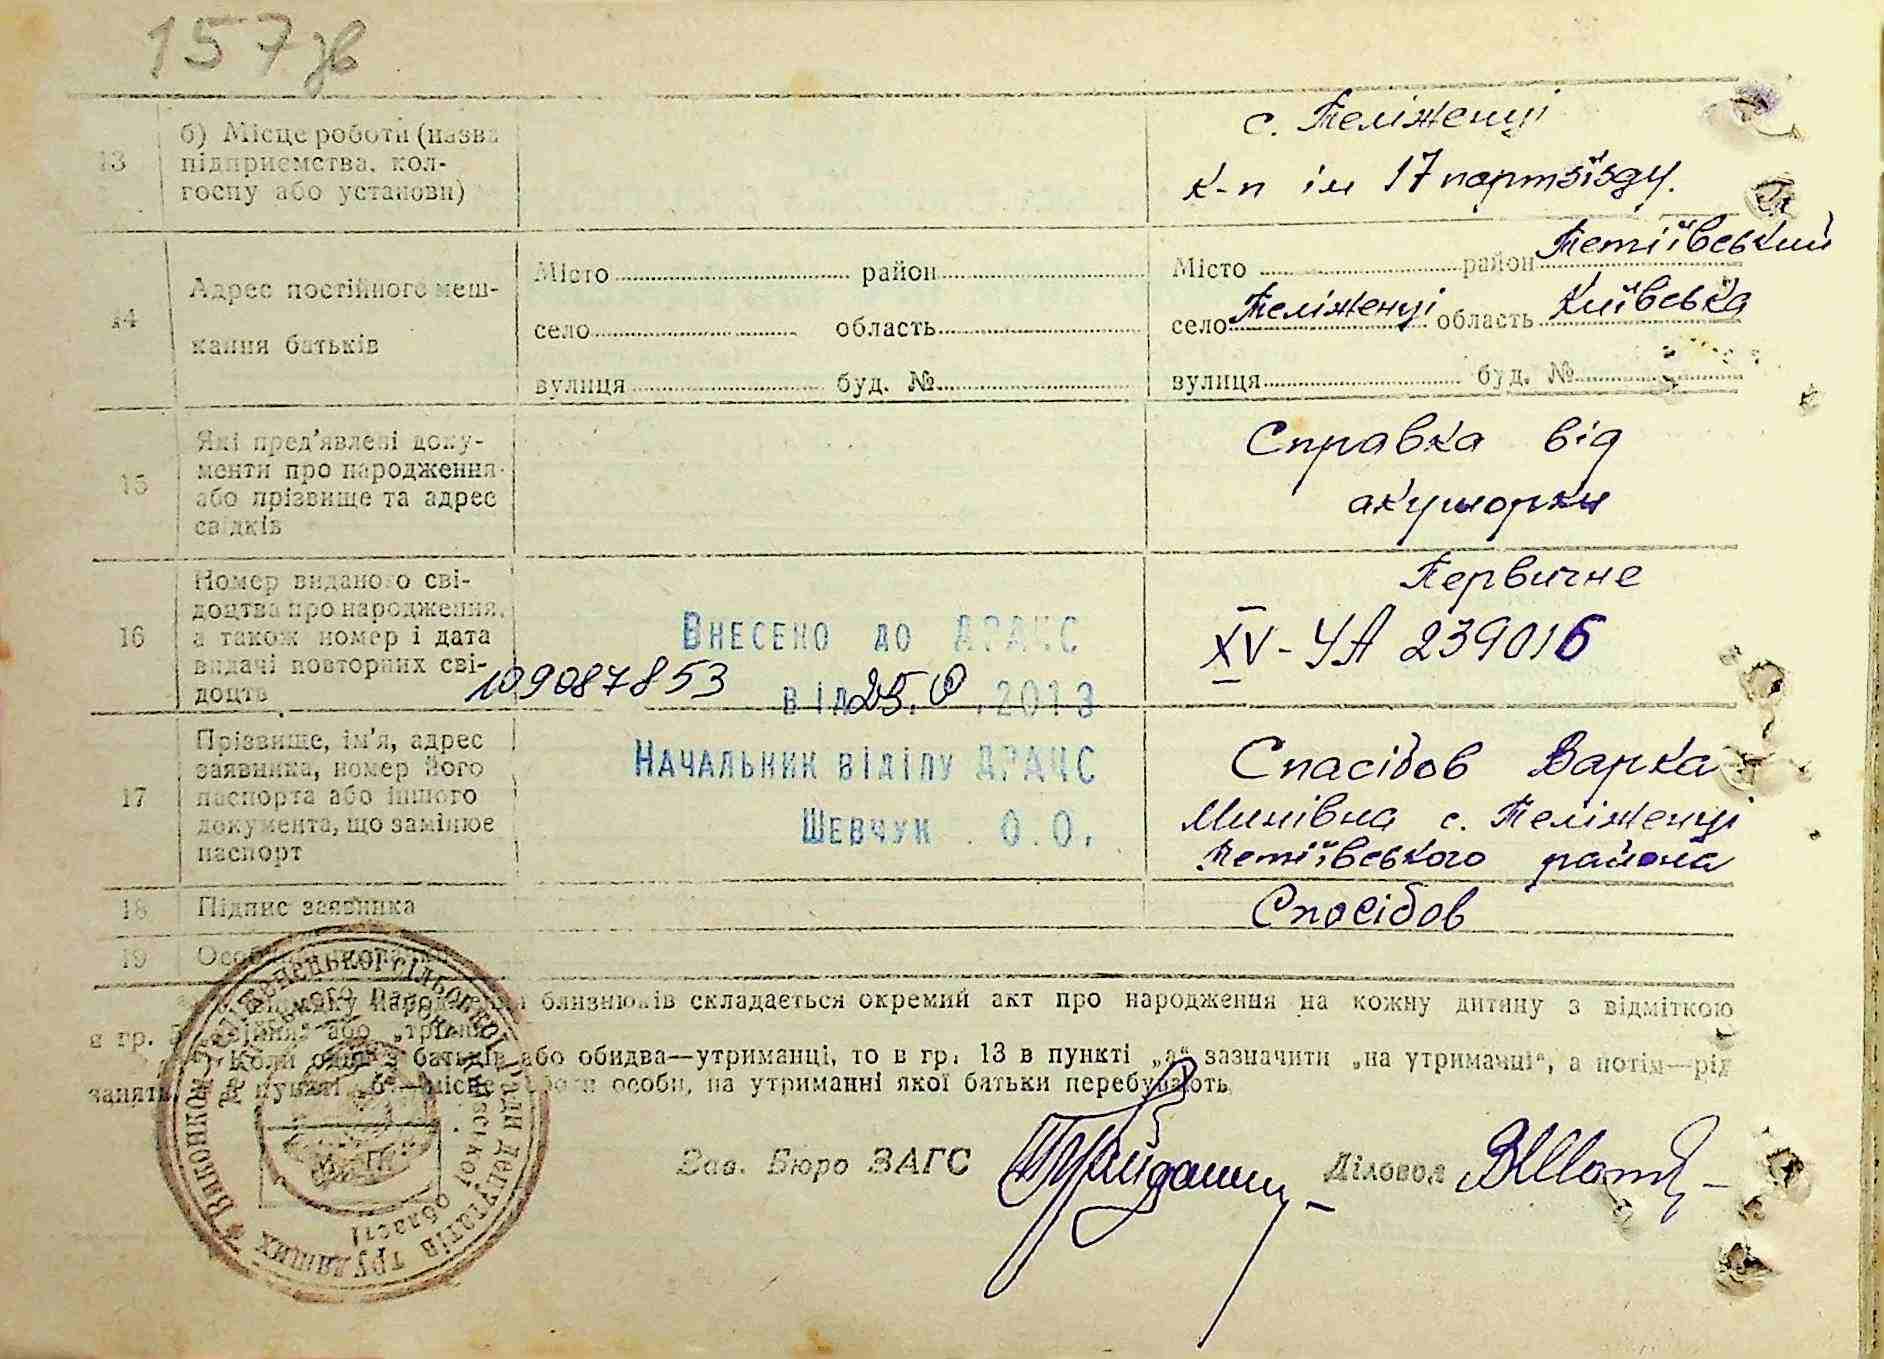 157 зв
13 б) Місце роботи (назва с. Теліженці
підприємства, кол- к-п ім 17 партзїзду.
госпу або установи)
14 Адрес постійного меш- Місто район Місто район Тетіївський
село область село Теліженці область Київська
кання батьків
вулиця буд. № вулиця буд. №
15 Які пред'явлені доку- Справка від
менти про народження акушорки
або прізвище та адрес
свідків
16 Номер виданого сві- Первичне
доцтва про народження, Внесено до ДРАЦС XV-УА 239016
а також номер і дата
видачі повторних сві-
доцтв 109087853 від 25. .2013
17 Прізвище, ім'я, адрес Начальник відділу ДРАЦС Спасібов Варка
заявника, номер його Минівна с. Теліженці
паспорта або іншого Тетіївського района
документа, що замінює Шевчук О.О.
паспорт
18 Підпис заявника Спосібов
19
близнюків складається окремий акт про народження на кожну дитину з відміткою
в гр. 5 або „трійня“
Коли один з батьків або обидва—утриманці, то в гр. 13 в пункті „а“ зазначити „на утриманні“, а потім—рід
занять, в пункті „б“—місце особи, на утриманні якої батьки перебувають
Зав. Бюро ЗАГС Діловод
Виконком Теліженецької сільської ради депутатів трудящих
Київської області